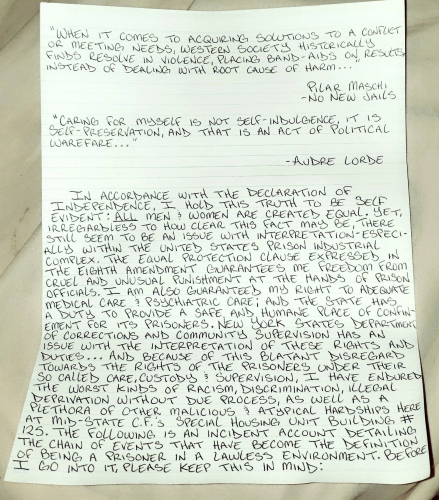 "WHEN IT COMES TO ACQUIRING SOLUTIONS TO A CONFLICT
OR MEETING NEEDS, WESTERN SOCIETY HISTORICALLY
FINDS RESOLVE IN VIOLENCE, PLACING BAND-AIDS ON RESULTS,
INSTEAD OF DEALING WITH ROOT CAUSE OF HARM...
PILAR MASCHI
-NO NEW JAILS
"CARING FOR MYSELF IS NOT SELF-INDULGENCE, IT IS
SELF-PRESERVATION, AND THAT IS AN ACT OF POLITICAL
WAREFARE..."
-AUDRE LORDE
IN ACCORDANCE WITH THE DECLARATION OF
INDEPENDENCE, I HOLD THIS TRUTH TO BE SELF
EVIDENT: ALL MEN & WOMEN ARE CREATED EQUAL. YET,
IRREGARDLESS TO HOW CLEAR THIS FACT MAY BE, THERE
STILL SEEM TO BE AN ISSUE WITH INTERPRETATION-ESPECI-
ALLY WITHIN THE UNITED STATES PRISON INDUSTRIAL
COMPLEX. THE EQUAL PROTECTION CLAUSE EXPRESSED IN
THE EIGHTH AMENDMENT GUARANTEES ME FREEDOM FROM
CRUEL AND UNUSUAL PUNISHMENT AT THE HANDS OF PRISON
OFFICIALS. I AM ALSO GUARANTEED MY RIGHT TO ADEQUATE
MEDICAL CARE & PSYCHIATRIC CARE; AND THE STATE HAS
A DUTY TO PROVIDE A SAFE AND HUMANE PLACE OF CONFIN-
EMENT FOR ITS PRISONERS. NEW YORK STATES DEPARTMENT
OF CORRECTIONS AND COMMUNITY SUPERVISION HAS AN
ISSUE WITH THE INTERPRETATION OF THESE RIGHTS AND
DUTIES... AND BECAUSE OF THIS BLATANT DISREGARD
TOWARDS THE RIGHTS OF THE PRISONERS UNDER THEIR
SO CALLED CARE, CUSTODY & SUPERVISION, I HAVE ENDURED
THE WORST KINDS OF RACISM, DISCRIMINATION, ILLEGAL
DEPRIVATION WITHOUT DUE PROCESS, AS WELL AS A
PLETHORA OF OTHER MALICIOUS & ATYPICAL HARDSHIPS HERE
AT MID-STATE C.F.'S SPECIAL HOUSING UNIT BUILDING #
125. THE FOLLOWING IS AN INCIDENT ACCOUNT DETAILING
THE CHAIN OF EVENTS THAT HAVE BECOME THE DEFINITION
OF BEING A PRISONER IN A LAWLESS ENVIRONMENT. BEFORE
I GO INTO IT, PLEASE KEEP THIS IN MIND: